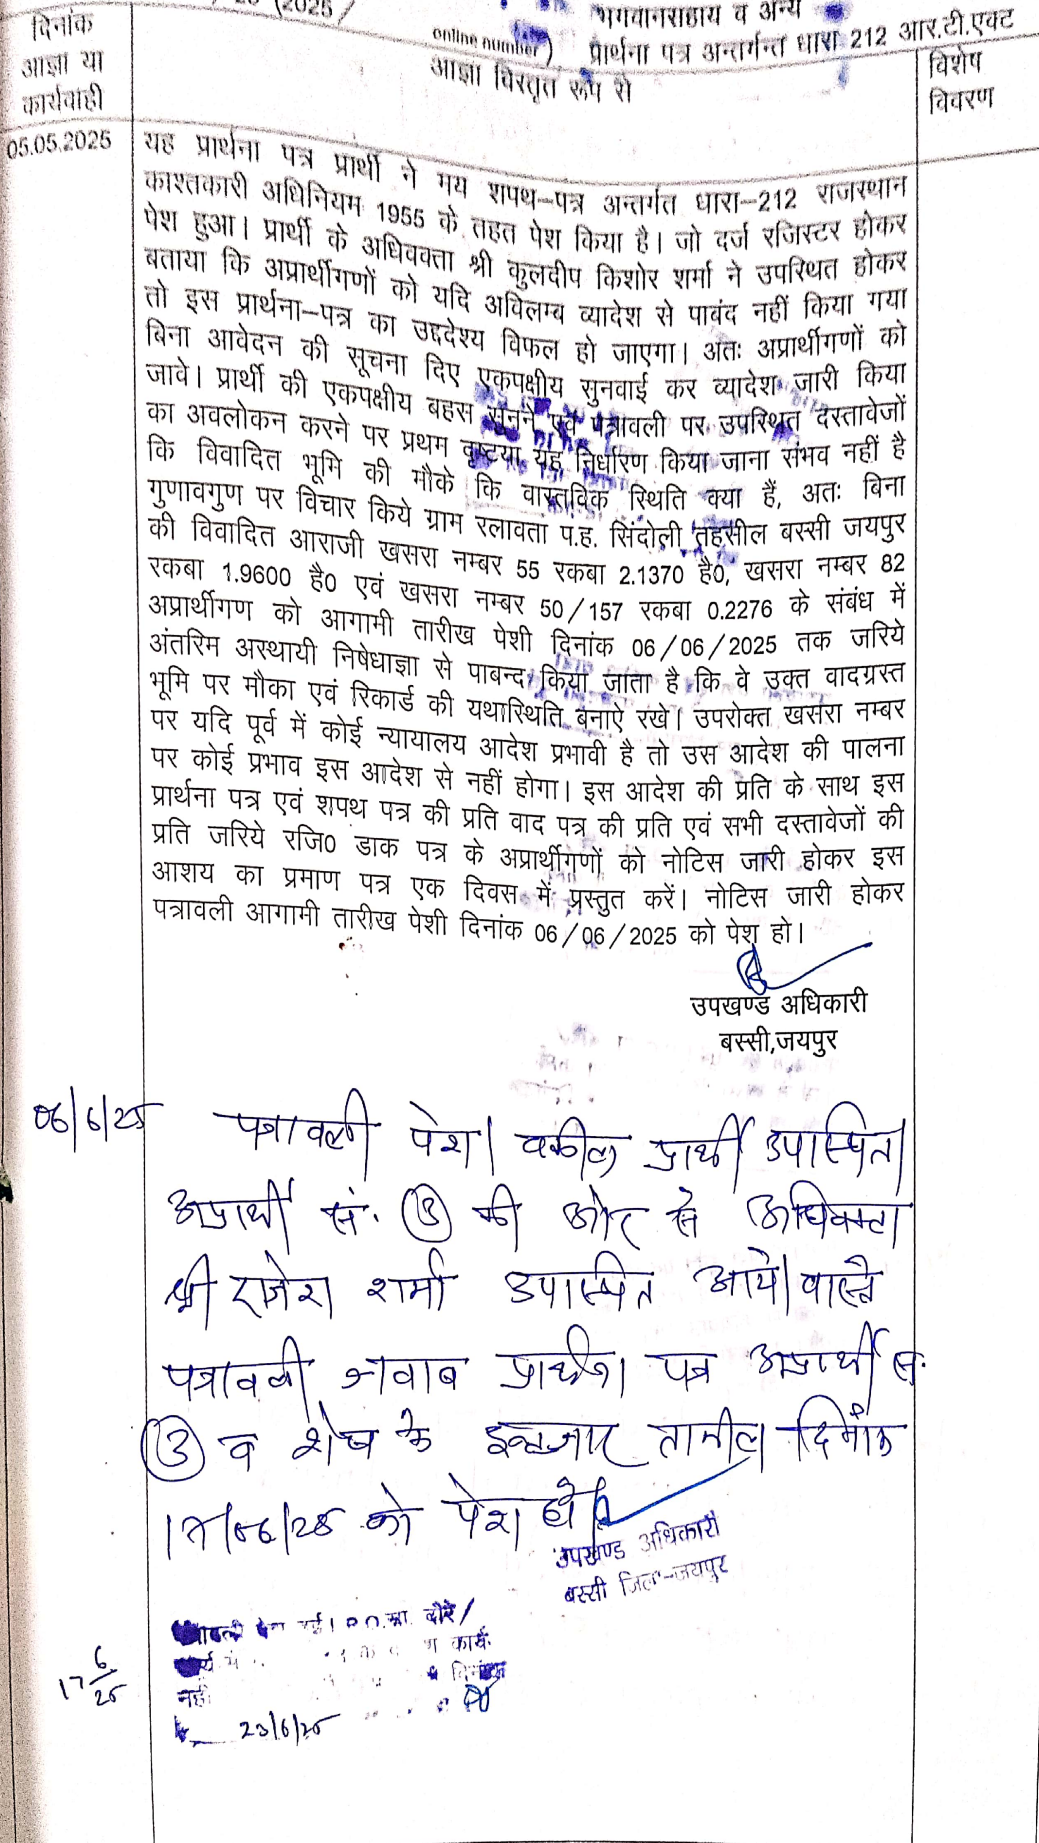 (2025 / भगवानसहाय व अन्य
दिनांक आज्ञा या कार्यवाही
online number) प्रार्थना पत्र अन्तर्गन्त धारा 212 आर.टी.एक्ट
आज्ञा विस्तृत रूप से
विशेष विवरण
05.05.2025
यह प्रार्थना पत्र प्रार्थी ने मय शपथ–पत्र अन्तर्गत धारा–212 राजस्थान
काश्तकारी अधिनियम 1955 के तहत पेश किया है। जो दर्ज रजिस्टर होकर
पेश हुआ। प्रार्थी के अधिवक्ता श्री कुलदीप किशोर शर्मा ने उपस्थित होकर
बताया कि अप्रार्थीगणों को यदि अविलम्ब व्यादेश से पाबंद नहीं किया गया
तो इस प्रार्थना–पत्र का उद्देश्य विफल हो जाएगा। अतः अप्रार्थीगणों को
बिना आवेदन की सूचना दिए एकपक्षीय सुनवाई कर व्यादेश जारी किया
जावे। प्रार्थी की एकपक्षीय बहस सुनने एवं पत्रावली पर उपस्थित दस्तावेजों
का अवलोकन करने पर प्रथम दृष्टया यह निर्धारण किया जाना संभव नहीं है
कि विवादित भूमि की मौके कि वास्तविक स्थिति क्या हैं, अतः बिना
गुणावगुण पर विचार किये ग्राम रलावता प.ह. सिंदोली तहसील बस्सी जयपुर
की विवादित आराजी खसरा नम्बर 55 रकबा 2.1370 है0, खसरा नम्बर 82
रकबा 1.9600 है0 एवं खसरा नम्बर 50/157 रकबा 0.2276 के संबंध में
अप्रार्थीगण को आगामी तारीख पेशी दिनांक 06/06/2025 तक जरिये
अंतरिम अस्थायी निषेधाज्ञा से पाबन्द किया जाता है कि वे उक्त वादग्रस्त
भूमि पर मौका एवं रिकार्ड की यथास्थिति बनाऐ रखे। उपरोक्त खसरा नम्बर
पर यदि पूर्व में कोई न्यायालय आदेश प्रभावी है तो उस आदेश की पालना
पर कोई प्रभाव इस आदेश से नहीं होगा। इस आदेश की प्रति के साथ इस
प्रार्थना पत्र एवं शपथ पत्र की प्रति वाद पत्र की प्रति एवं सभी दस्तावेजों की
प्रति जरिये रजि0 डाक पत्र के अप्रार्थीगणों को नोटिस जारी होकर इस
आशय का प्रमाण पत्र एक दिवस में प्रस्तुत करें। नोटिस जारी होकर
पत्रावली आगामी तारीख पेशी दिनांक 06/06/2025 को पेश हो।
उपखण्ड अधिकारी
बस्सी,जयपुर
06/6/25 पत्रावली पेश। वकील प्रार्थी उपस्थित।
अप्रार्थी सं. (3) की ओर से अधिवक्ता
श्री राजेश शर्मा उपस्थित आये। वास्ते
पत्रावली जवाब प्रार्थना पत्र अप्रार्थी सं.
(3) व शेष के इन्तजार तामील दिनांक
17/06/25 को पेश हो।
उपखण्ड अधिकारी
बस्सी जिला–जयपुर
17 6/25
दौरे/
कार्य
नहीं
23/6/25